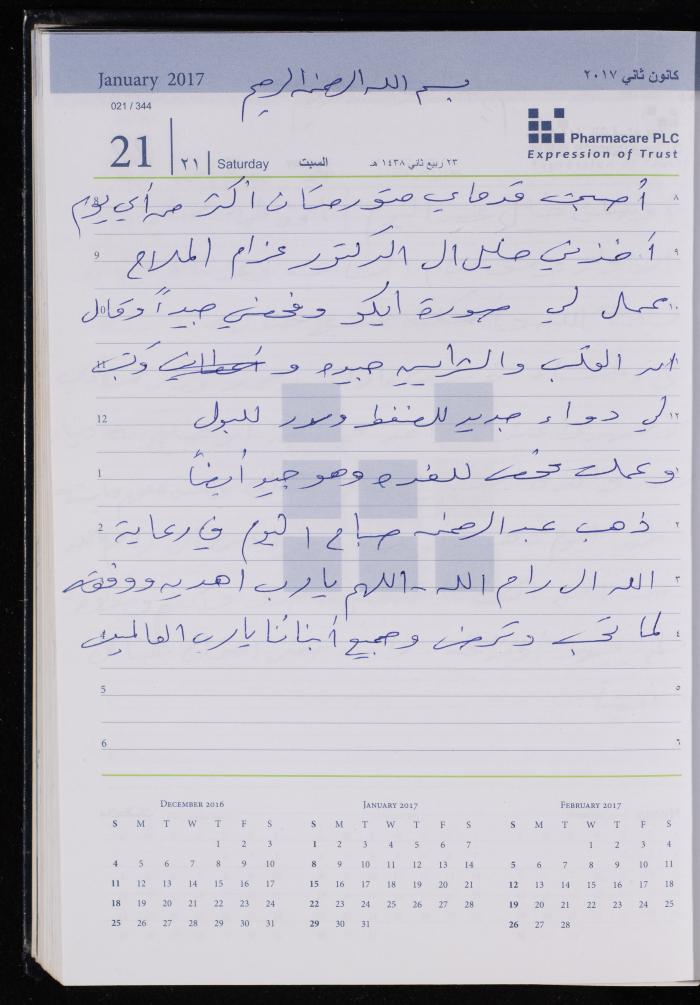 January 2017 كانون ثاني ٢٠١٧
بسم الله الرحمن الرحيم
021 / 344
21 ٢١ Saturday السبت ٢٣ ربيع ثاني ١٤٣٨ هـ
Pharmacare PLC
Expression of Trust
أصبحت قدماي متورمتان أكثر من أي يوم ٨
9 أخذني خليل ال الدكتور عزام الملاح ٩
10 عمال لي صورة ايكو وفحصني جيداً وقال ١٠
11 ان القلب والشرايين جيده و وكتب ١١
12 لي دواء جديد للضغط ومدر للبول ١٢
1 وعملت فحص للغده وهو جيد أيضاً ١
2 ذهب عبدالرحمن صباح اليوم في رعاية ٢
الله ال رام الله - اللهم يارب اهديه ووفقه ٣
4 لما تحب وترضى وجميع أبنائنا يارب العالمين ٤
5 ٥
6 ٦
December 2016
S M T W T F S
1 2 3
4 5 6 7 8 9 10
11 12 13 14 15 16 17
18 19 20 21 22 23 24
25 26 27 28 29 30 31
January 2017
S M T W T F S
1 2 3 4 5 6 7
8 9 10 11 12 13 14
15 16 17 18 19 20 21
22 23 24 25 26 27 28
29 30 31
February 2017
S M T W T F S
1 2 3 4
5 6 7 8 9 10 11
12 13 14 15 16 17 18
19 20 21 22 23 24 25
26 27 28